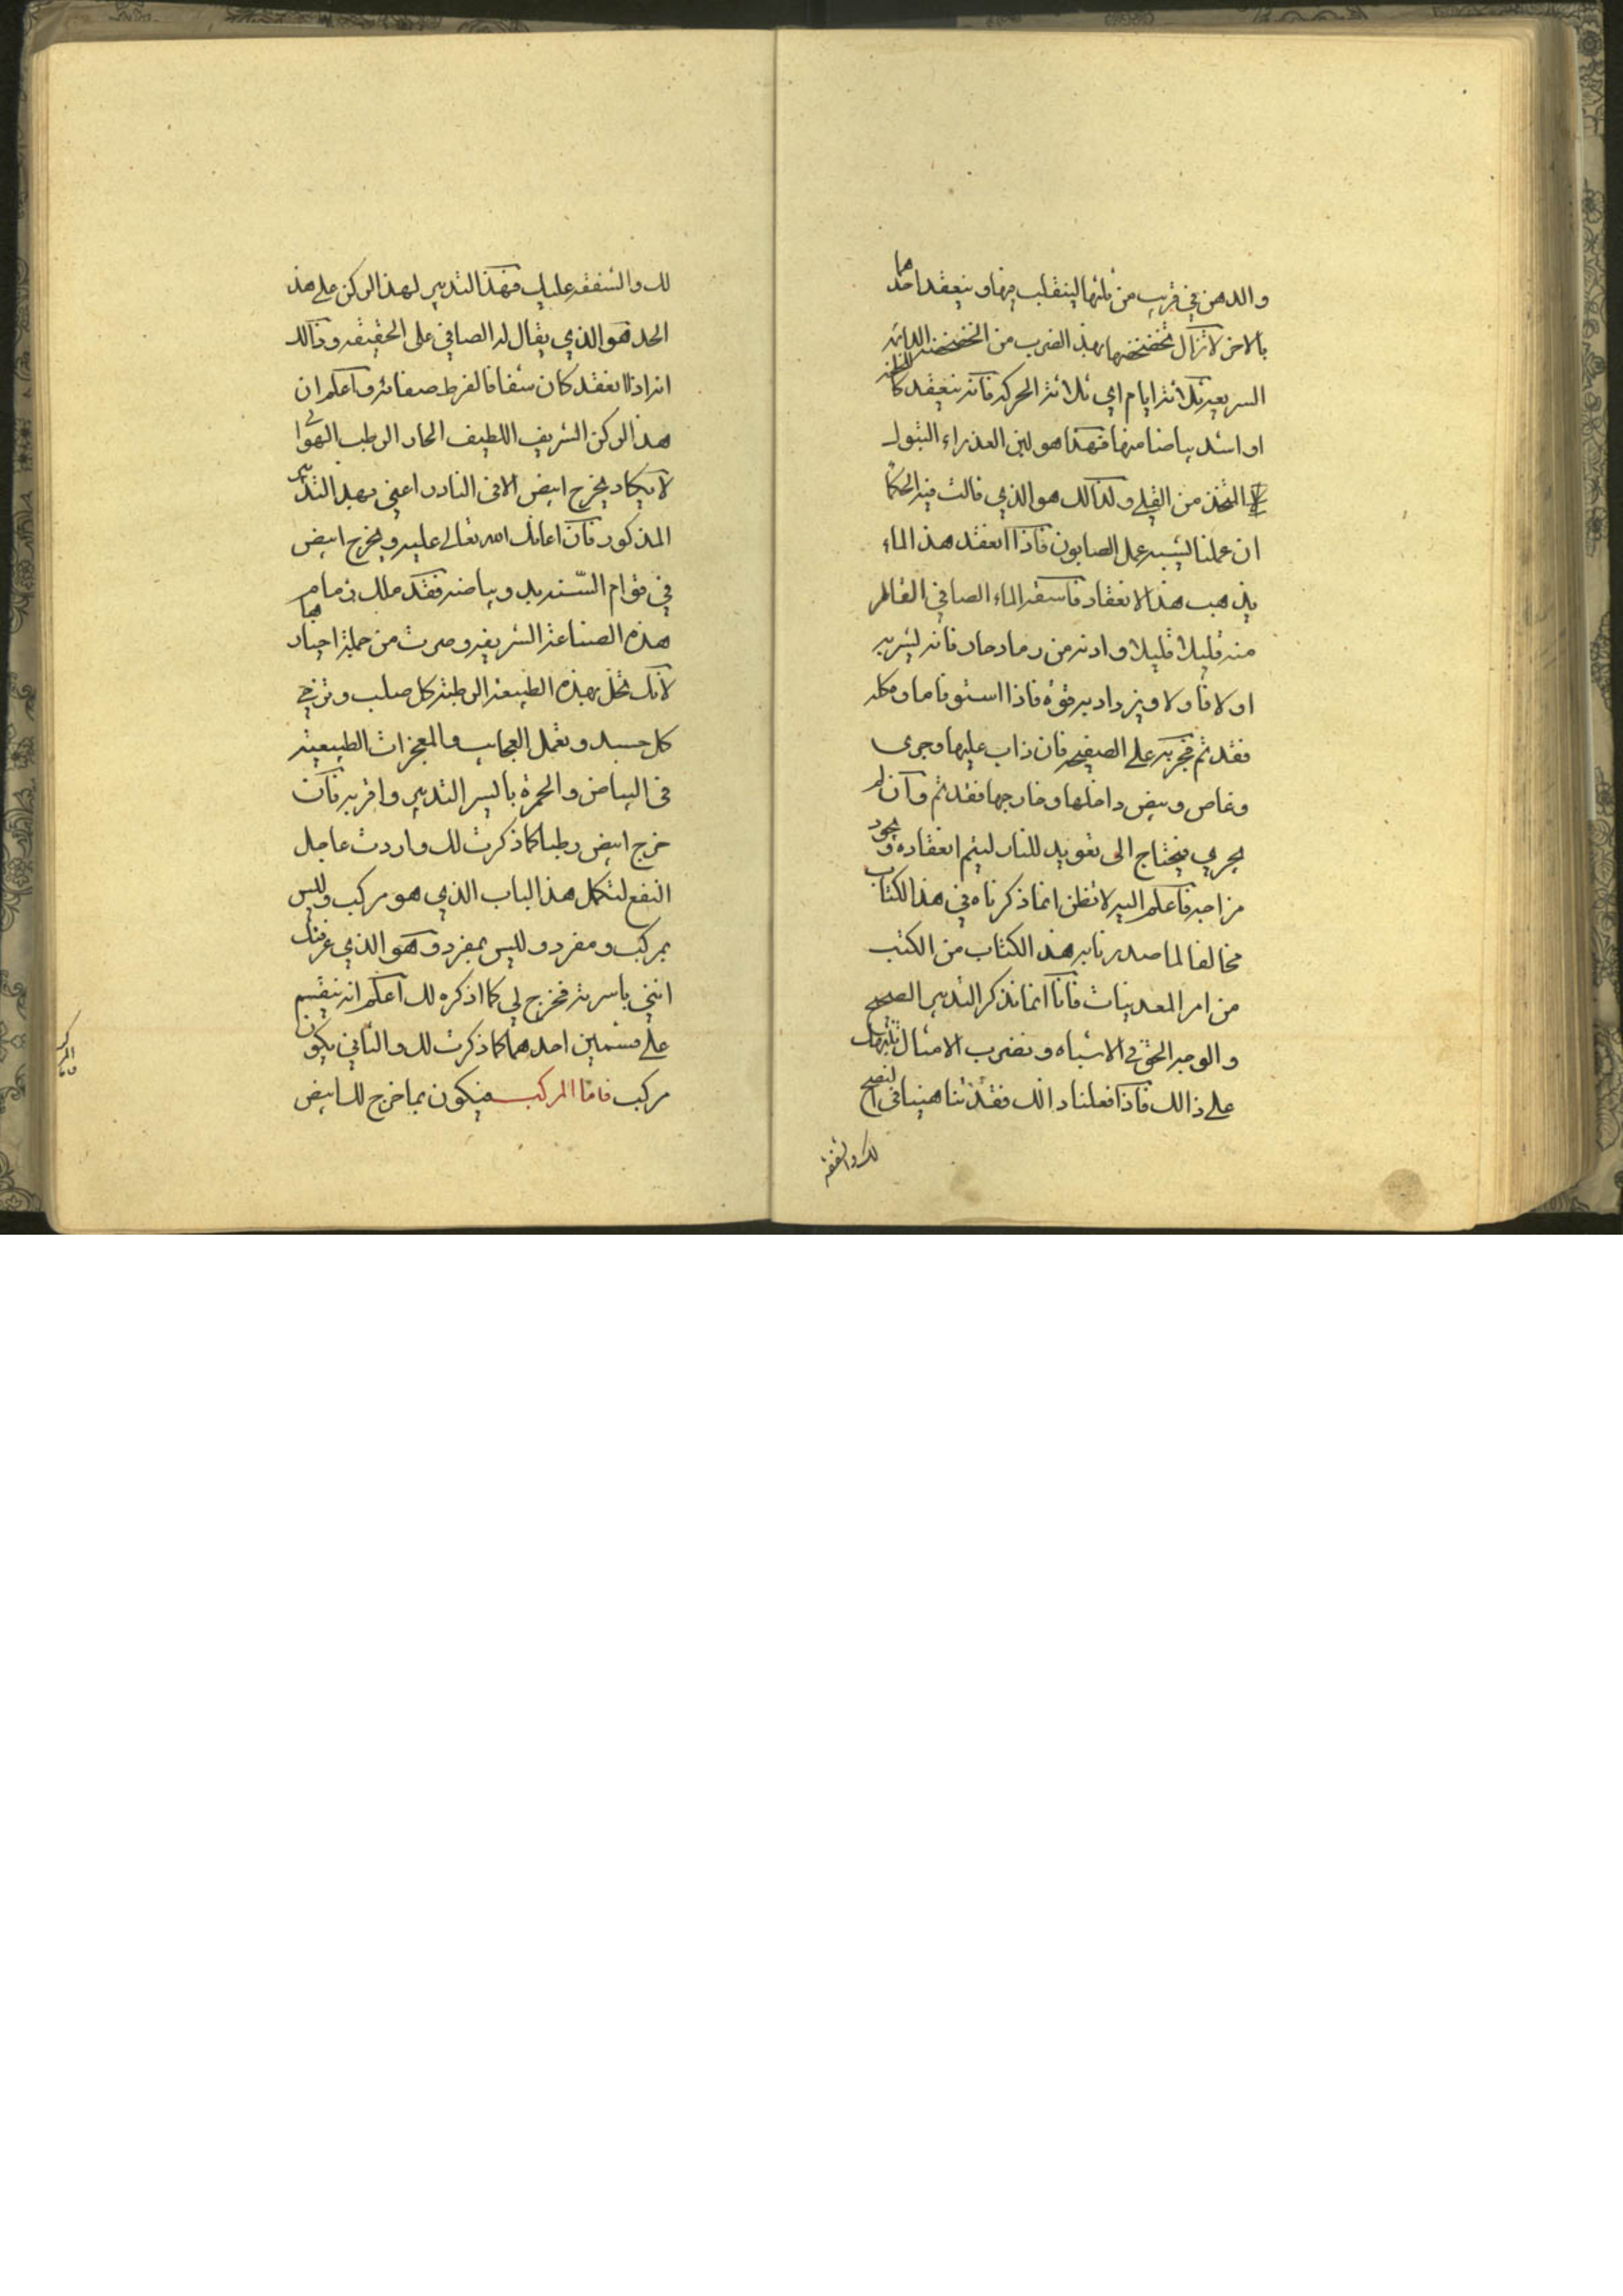 والدهن في قريب من ثلثها لينقلب فيها وينعقد احدهما
بالاخر لا تزال تخضخضها بهذ الضرب من الخضخضه الدائمه
السريعه ثلاثة ايام اي ثلاثة الحركه فانه ينعقد كاللبن
او اشد بياضا منها فهذا هو لبن العذراء البتول
المتخذ من القلي ولذالك هو الذي قالت فيه الحكما
ان عملنا يشبه عمل الصابون فاذا انعقد هذ الماء
يذهب هذ الانعقاد فاسقه الماء الصافي القالر
منه قليلا قليلا وادنه من رماد حار فانه يشربه
اولا فاولا ويزداد به قوة فاذا استوفا ما وكله
فقد تم فجربه على الصفيحه فان ذاب عليها وجرى
وغاص وبيض داخلها وخارجها فقد تم وان لم
يجري فيحتاج الى تعويد للنار ليتم انعقاده ويجود
مزاجه فاعلم اليه لا تظن انما ذكرناه في هذ الكتاب
مخالفا لما صدرنا به هذ الكتاب من الكتب
من امر المعدنيات فانا انما نذكر التدبير الصحيح
والوجه الحق في الاشباه ونضرب الامثال تنبيها لك
على ذالك فاذا فعلنا ذالك فقد تناهينا في النصح
لك والشفقه
لك والشفقه عليك فهذ التدبير لهذ الركن على هذ
الحد هو الذي يقال له الصافي على الحقيقه وذالك
انه اذا انعقد كان شفافا لفرط صفائه واعلم ان
هذ الركن الشريف اللطيف الحار الرطب الهوائي
لا يكاد يخرج ابيض الا في النادر اعني بهذ التدبير
المذكور فان اعانك الله تعالى عليه ويخرج ابيض
في قوام السندبد وبياضه فقد ملك زمام
هذه الصناعة الشريفه وصرت من جملة احبارها
لانك تحل بهذه الطبيعة الرطبة كل صلب وترخي
كل جسد وتعمل العجايب والمعجزات الطبيعية
في البياض والحمرة بايسر التدبير واقربه فان
خرج ابيض رطبا كما ذكرت لك واردت عاجل
النفع لتكمل هذ الباب الذي هو مركب وليس
بمركب ومفرد وليس بمفرد وهو الذي عرفتك
انني باشرته فخرج لي كما اذكره لك اعلم انه ينقسم
على قسمين احدهما كما ذكرت لك والثاني يكون
مركب فاما المركب فيكون بما خرج لك ابيض